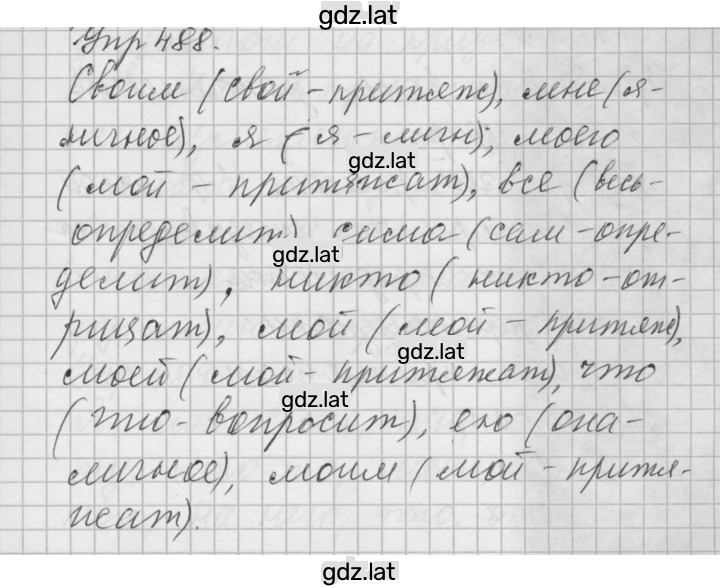 gdz.lat
Упр 488.
Своим (свой - притяж), мне (я-
личное), я (я - личн), моего
gdz.lat
(мой - притяжат), все (весь-
определит) сама (сам - опре-
gdz.lat
делит), никто (никто - от-
рицат), мой (мой - притяж),
gdz.lat
моей (мой - притяжат), что
gdz.lat
(что - вопросит), ею (она-
личное), моим (мой - притя-
жат).
gdz.lat